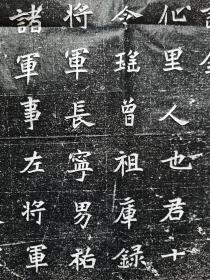 化里人也君十
令瑤曾祖庫録
將軍長寧男祐
諸軍事左將軍